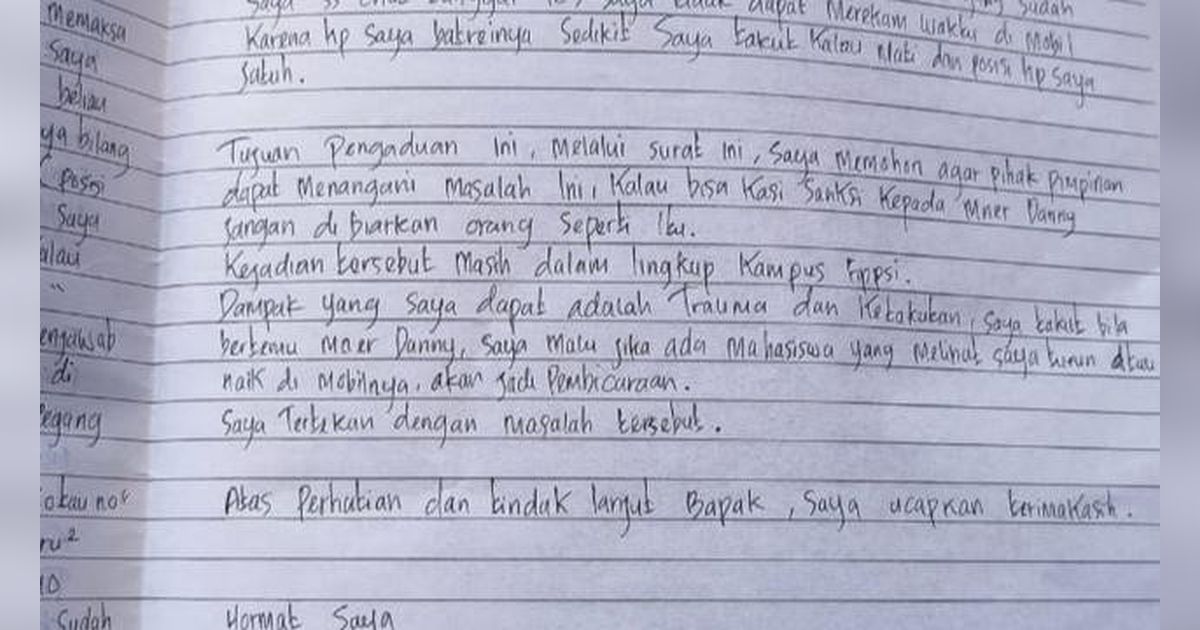 memaksa
saya
beliau
ya bilang
posisi
saya
alau
"
engawab
di
pegang
ru²
10
sudah
saya dapat Merekam waktu di Mobil sudah
Karena hp saya batreinya Sedikit Saya takut Kalau Mati dan posisi hp saya
Jatuh.
Tujuan Pengaduan Ini, Melalui surat Ini, Saya Memohon agar pihak Pimpinan
dapat Menangani Masalah Ini, Kalau bisa Kasi Sanksi Kepada Mner Danny
Jangan di biarkan orang Seperti Itu.
Kejadian tersebut Masih dalam lingkup Kampus Fippsi.
Dampak yang saya dapat adalah Trauma dan Ketakutan, saya takut bila
bertemu Mner Danny, saya Malu jika ada Mahasiswa yang Melihat saya turun Atau
naik di Mobilnya, akan jadi Pembicaraan.
Saya Tertekan dengan Masalah tersebut.
Atas Perhatian dan tindak lanjut Bapak, Saya ucapkan terimakasih.
Hormat Saya